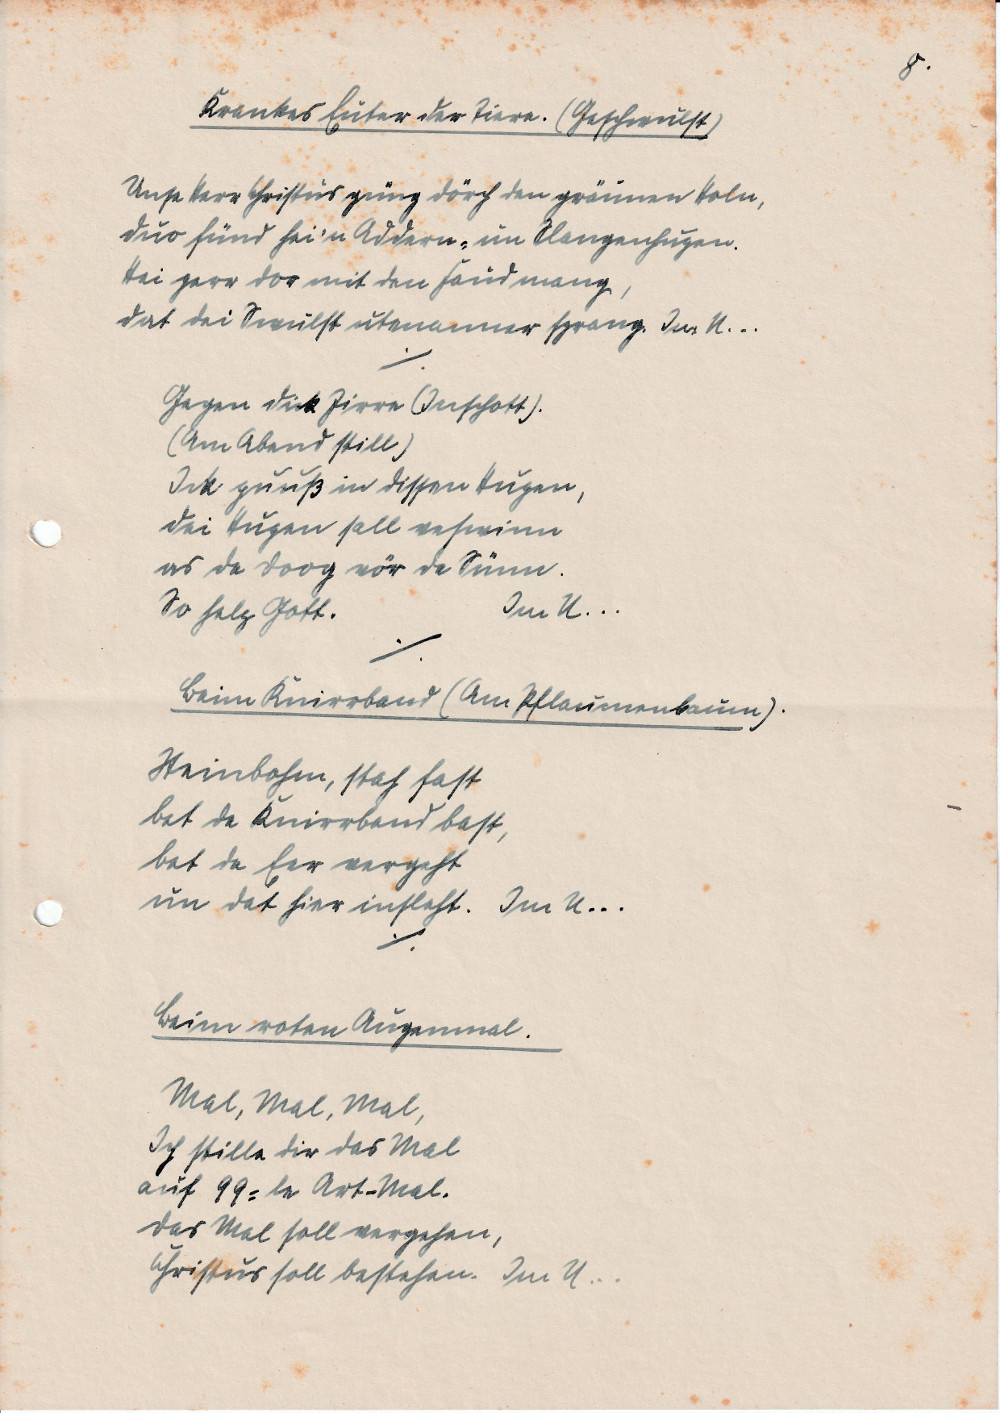 8.
Krankes Euter der Tiere. (Geschwulst)
Unse Herr Christus güng dörch den gräunen Holn,
duo fünd hei'n Addern= un Slangenhugen.
Hei herr dor mit den Hand mang,
dat dei Swulst utenanner sprang. Im N...
Gegen dick Jirre (Inschott).
(Am Abend still)
Ick in dissen Hugen,
dei Hugen sall veswinn
as de Doog vör de Sünn.
So help Gott. Im N...
Beim Knirrband (Am Pflaumenbaum).
Steinbohm, stah fast
bet de Knirrband bast,
bet de Eer vergeht
un dat hier insleht. Im N...
Beim roten Augenmal.
Mal, Mal, Mal,
Ich stille dir das Mal
auf 99=le Art-Mal.
Das Mal soll vergehen,
Christus soll bestehen. Im N...